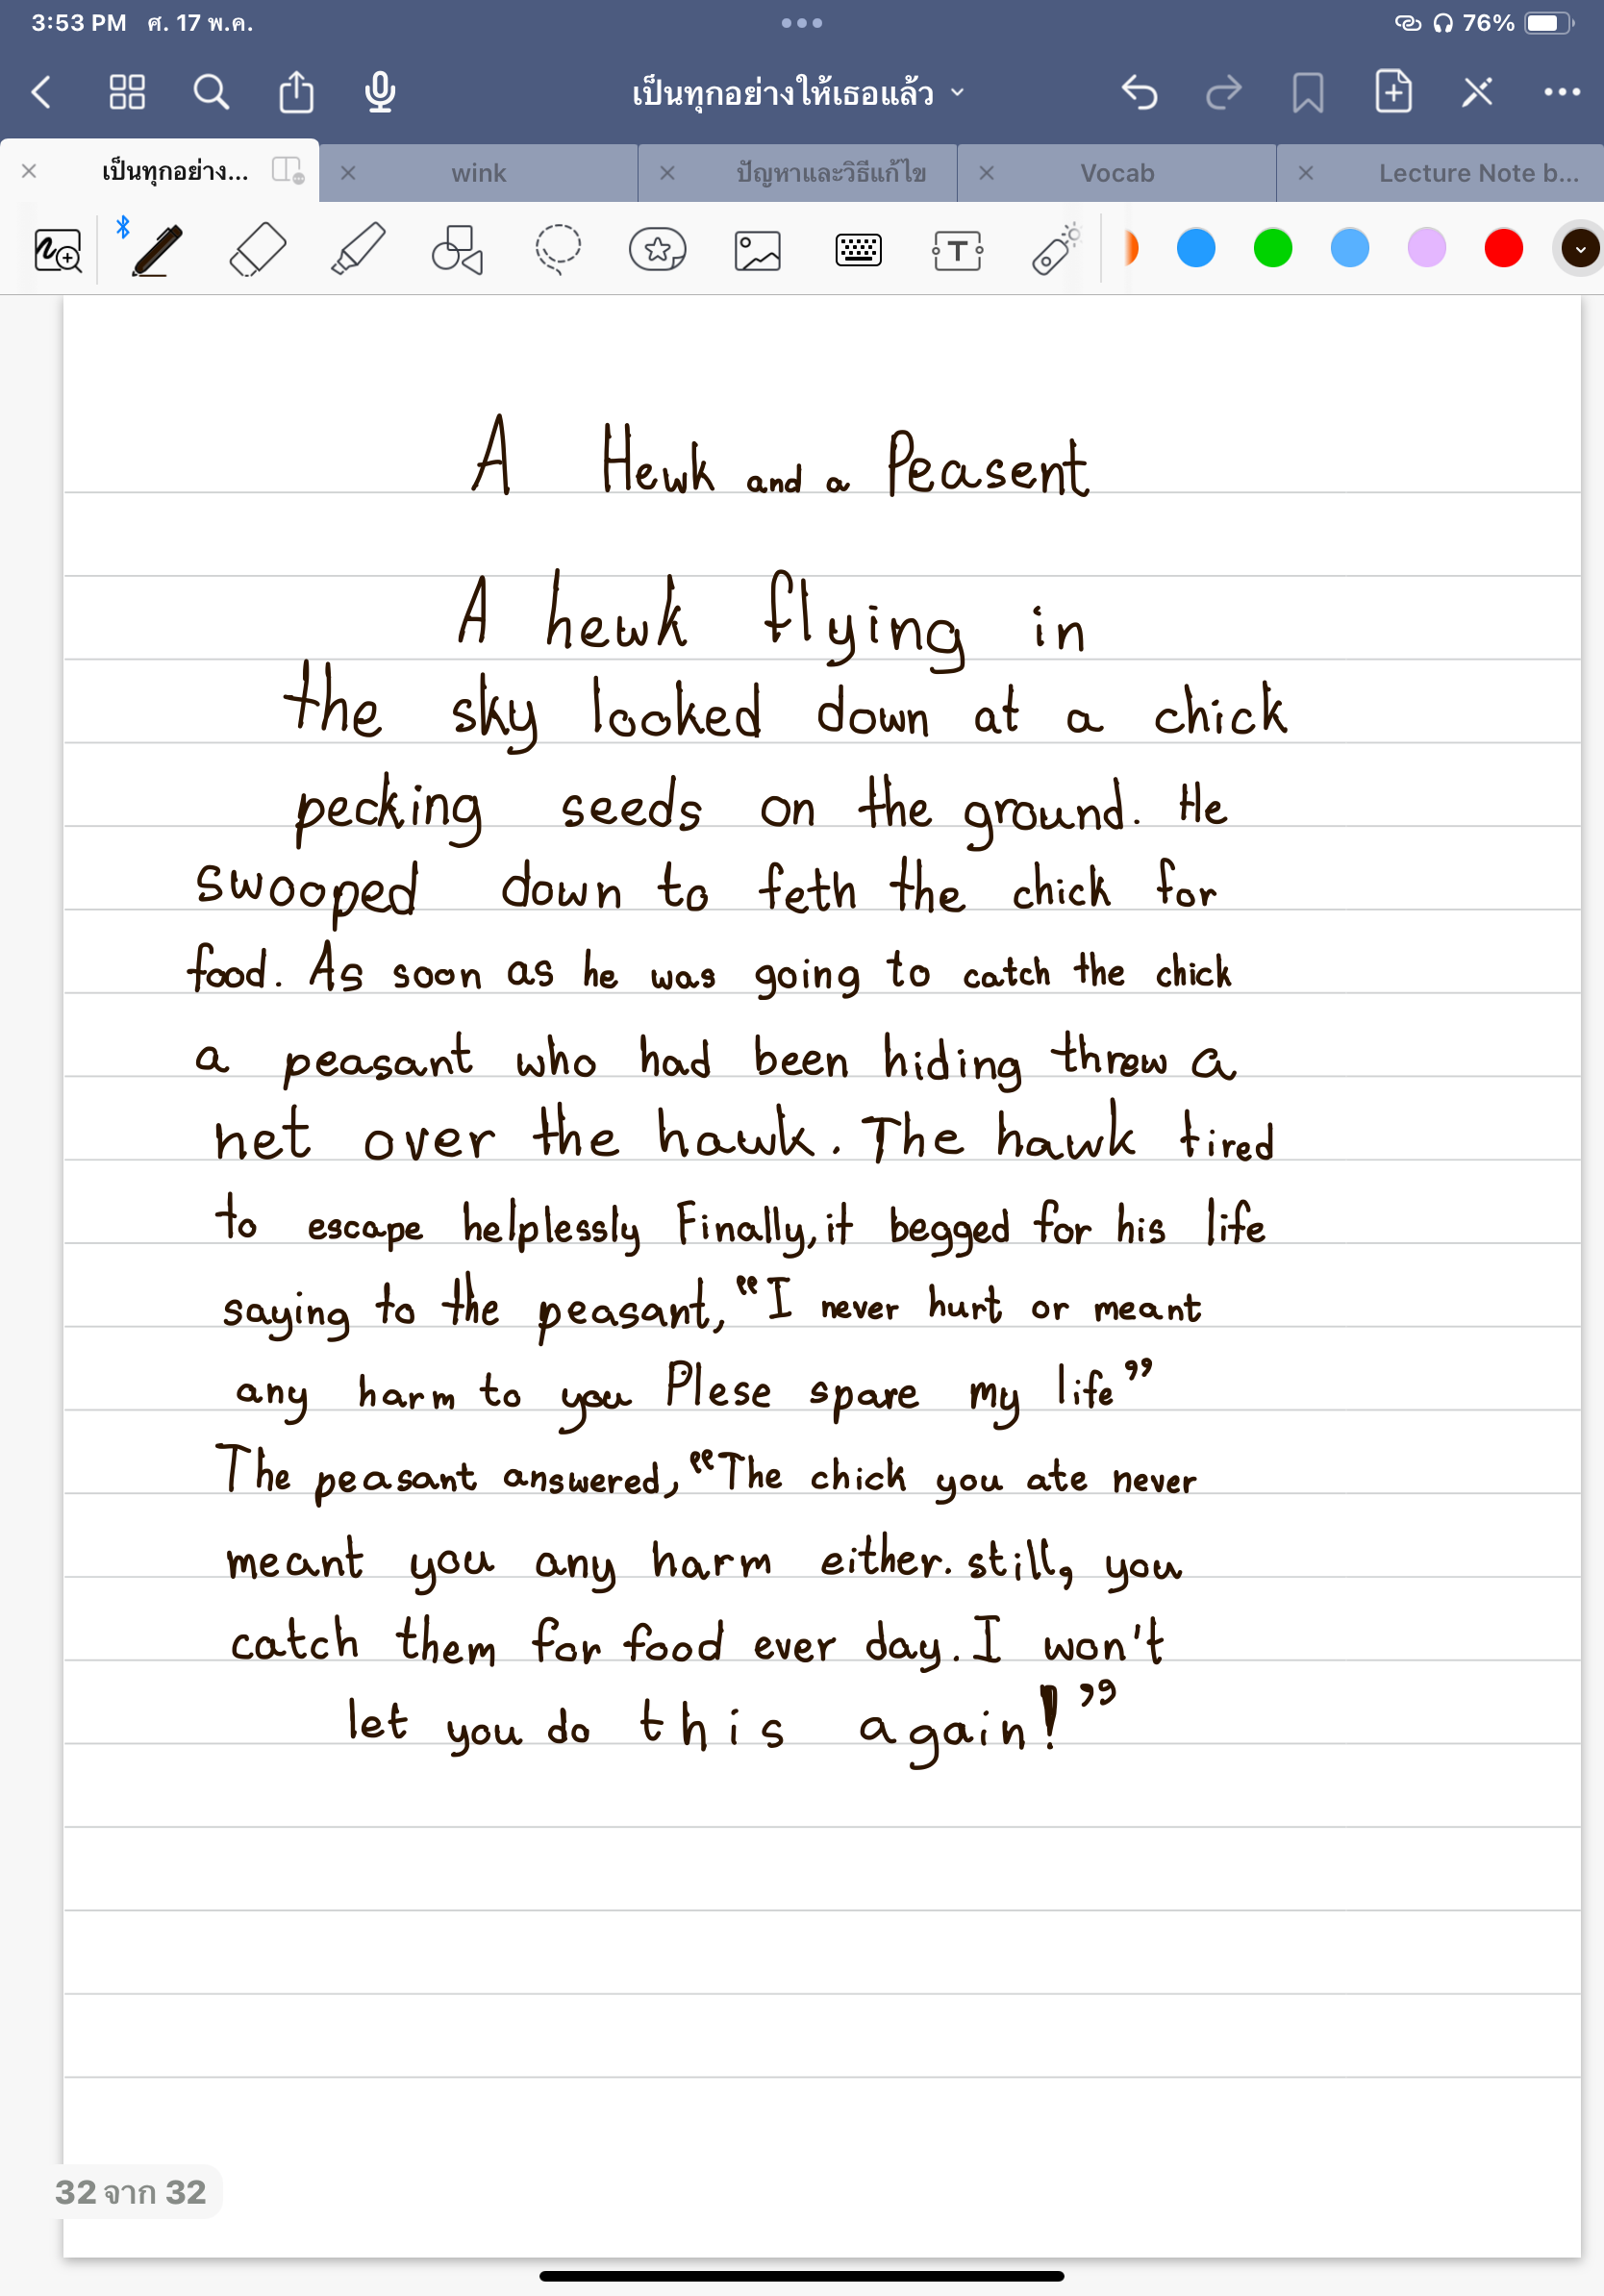 3:53 PM ศ. 17 พ.ค. 76%
เป็นทุกอย่างให้เธอแล้ว
เป็นทุกอย่าง... wink ปัญหาและวิธีแก้ไข Vocab Lecture Note b...
A Hewk and a Peasent
A hewk flying in
the sky looked down at a chick
pecking seeds on the ground. He
swooped down to feth the chick for
food. As soon as he was going to catch the chick
a peasant who had been hiding threw a
net over the hawk. The hawk tired
to escape helplessly Finally, it begged for his life
saying to the peasant, "I never hurt or meant
any harm to you Plese spare my life"
The peasant answered, "The chick you ate never
meant you any harm either. still, you
catch them for food ever day. I won't
let you do this again!"
32 จาก 32